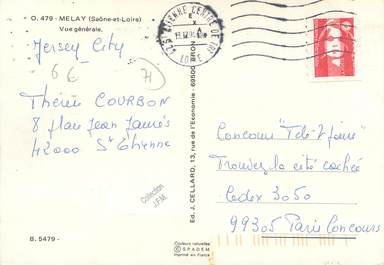 O. 479 - MELAY (Saône-et-Loire)
Vue générale.
Jersey City
6€
71
Thérèse COURBON
8 place Jean Jaurès
42000 St Etienne
Collection
J.F.M.
B. 5479 -
Ed. J. CELLARD, 13, rue de l'Economie - 69500 BRON
Couleurs naturelles
© SPADEM
Imprimé en France
ETIENNE CENTRE DE TRI
LOIRE
Concours "Télé 7 jours"
Trouvez la cité cachée
Cedex 3050
99305 Paris Concours